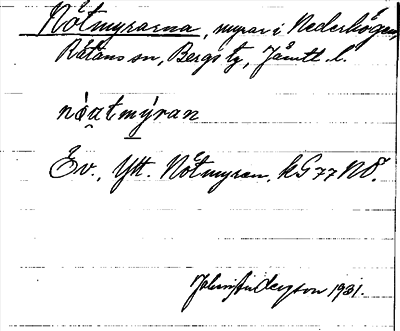 Nötmyrarna, myrar i Nederhögen,
Rätans sn, Bergs tg, Jämtl. l.
nò̯atmýran
Ev., Ytt. Nötmyran, kG 77 NÖ.
John Anderzson 1931.